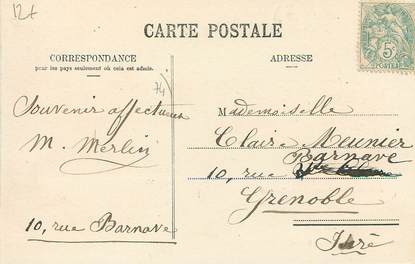 12t
CARTE POSTALE
CORRESPONDANCE
pour les pays seulement où cela est admis.
ADRESSE
5c
POSTES
74)
Souvenir affectueux
M. Merlin
10, rue Barnave
Mademoiselle
Claire Meunier
Barnave
10, rue
Grenoble
Isère